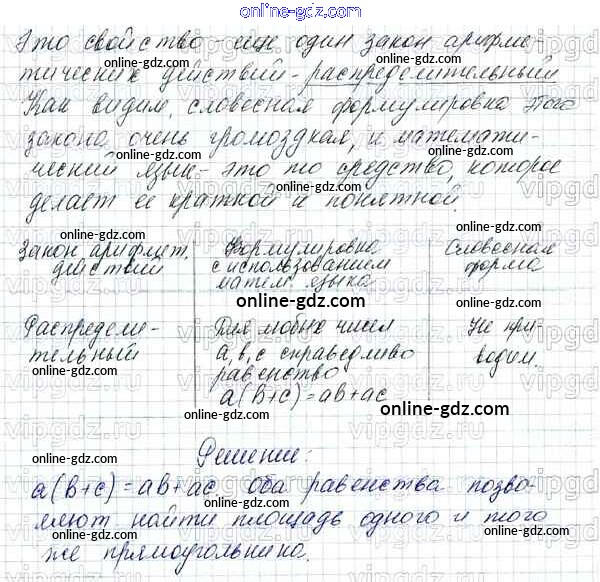 online-gdz.com
Это свойство - еще один закон арифме-
тических действий - распределительный
Как видим, словесная формулировка этого
закона очень громоздкая, и математи-
ческий язык - это то средство, которое
делает ее краткой и понятной.
Закон арифмет. действий | Формулировка с использованием матем. языка | Словесная форма
Распредели-тельный | Для любых чисел a, b, c справедливо равенство a(b+c)=ab+ac | Не при-водим.
Решение:
a(b+c)=ab+ac оба равенства позво-
ляют найти площадь одного и того
же прямоугольника.